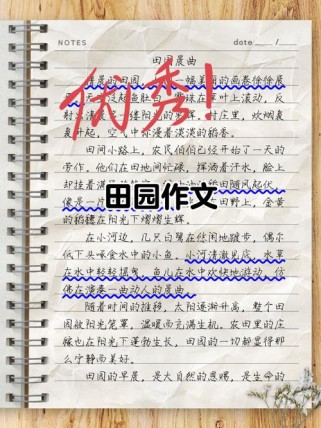 NOTES date
田园晨曲
清晨的田园,一幅美丽的画卷徐徐展
珠在草叶上滚动,反
缕阳光的 村庄里,炊烟袅
袅升起,空气中弥漫着淡淡的稻香。
优秀!
田间小路上,农民伯伯已经开始了一天的
劳作。他们在田地间忙碌,挥洒着汗水,脸上
却挂着满 田随风起伏,
像是一片 在田野上,金黄
田园作文
的稻穗在阳光下熠熠生辉。
在小河边,几只白鹭在悠闲地踱步,偶尔
低下头啄食水中的小鱼。小河清澈见底,水草
在水中轻轻摇曳,鱼儿在水中欢快地游动,仿
佛在演奏一曲动人的晨曲。
随着时间的推移,太阳逐渐升高,整个田
园被阳光笼罩,温暖而充满生机。农田里的庄
稼也在阳光下蓬勃生长,田园的一切都显得那
么宁静而美好。
田园的早晨,是大自然的恩赐,是生命的